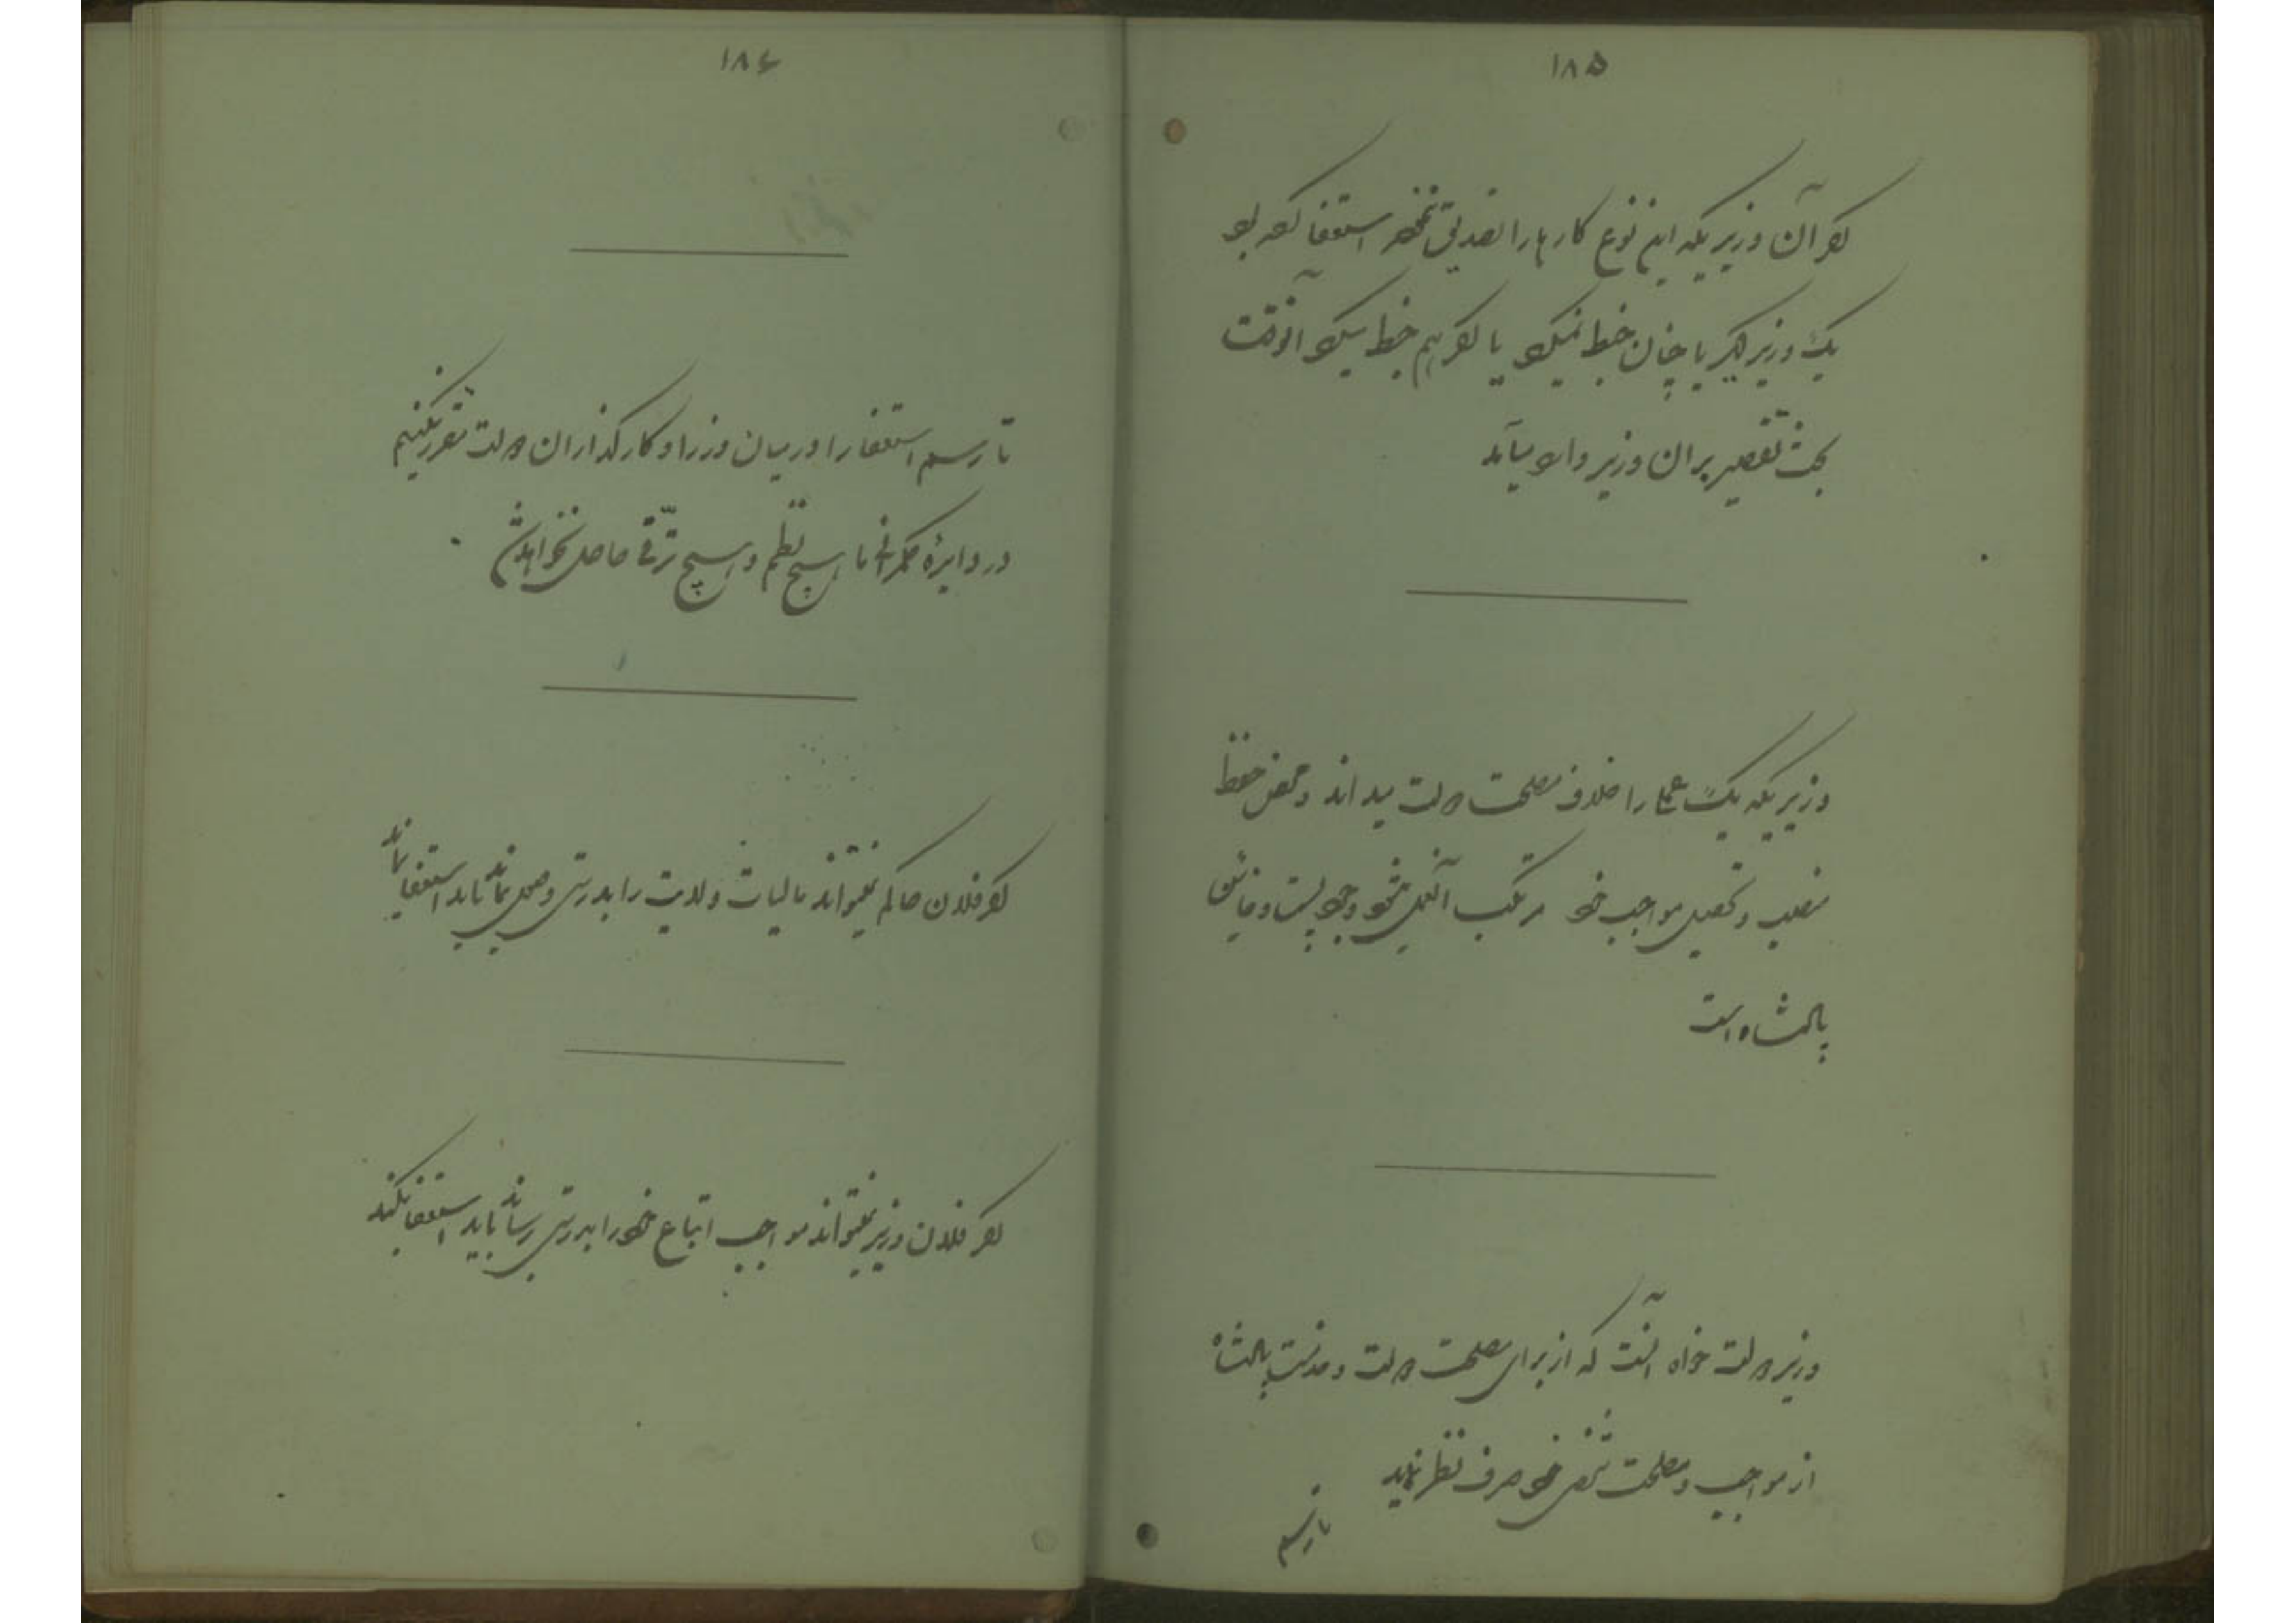 ۱۸۵
اگر آن وزیریکه این نوع کارها را تصدیق نمیکند استعفا کرده بود
یک وزیر دیگر یا چنان خبط نمیکرد یا اگر هم خبط میکرد آنوقت
بحث تقصیر بر آن وزیر وارد میآمد
وزیریکه یک عمل را خلاف مصلحت دولت میداند و محض حفظ
منصب و تحصیل مواجب خود مرتکب آنعمل میشود وجود پست و خائن
پادشاه است
وزیر دولت خواه آنست که از برای مصلحت دولت و خدمت پادشاه
از مواجب و مصلحت شخصی خود صرف نظر نماید
تا رسم
۱۸۶
تا رسم استعفا را در میان وزرا و کارگذاران دولت مقرر نکنیم
در دایرهٔ حکمرانی ما هیچ نظم و هیچ ترقی حاصل نخواهد شد
اگر فلان حاکم نمیتواند مالیات ولایت را بدرستی وصول نماید باید استعفا نماید
اگر فلان وزیر نمیتواند مواجب اتباع خود را بدرستی برساند باید استعفا بکند